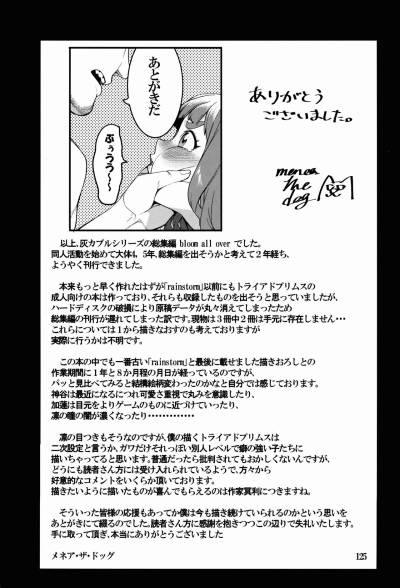 あとがきだ
ぶぅうう～
ありがとう
ございました。
menea
the
dog
以上、灰カブルシリーズの総集編 bloom all over でした。
同人活動を始めて大体4，5年、総集編を出そうかと考えて２年経ち、
ようやく刊行できました。
本来もっと早く作れたはずが「rainstorm」以前にもトライアドプリムスの
成人向けの本は作っており、それらも収録したものを出そうと思っていましたが、
ハードディスクの破損により原稿データが丸々消えてしまったため
総集編の刊行が遅れてしまった訳です。現物は３冊中２冊は手元に存在しません…
これらについては１から描きなおすのも考えておりますが
実際に行うかは不明です。
この本の中でも一番古い「rainstorm」と最後に載せました描きおろしとの
作業期間に１年と８か月程の月日が経っているのですが、
パッと見比べてみると結構絵柄変わったのかなと自分では感じております。
神谷は最近になるにつれ可愛さ重視で丸みを意識したり、
加蓮は目元をよりゲームのものに近づけていったり、
凛の瞳の闇が濃くなったり……………
凛の目つきもそうなのですが、僕の描くトライアドプリムスは
二次設定と言うか、ガワだけそれっぽい別人レベルで癖の強い子たちに
描いちゃってると思います。普通だったら批判されてもおかしくないんですが、
どうにも読者さん方には受け入れられているようで、方々から
好意的なコメントをいくらか頂いております。
描きたいように描いたものが喜んでもらえるのは作家冥利につきますね。
そういった皆様の応援もあって僕は今も描き続けていられるのかという思いを
あとがきにて綴るのでした。読者さん方に感謝を抱きつつこの辺りで失礼いたします。
手に取って頂き、本当にありがとうございました
メネア・ザ・ドッグ
125